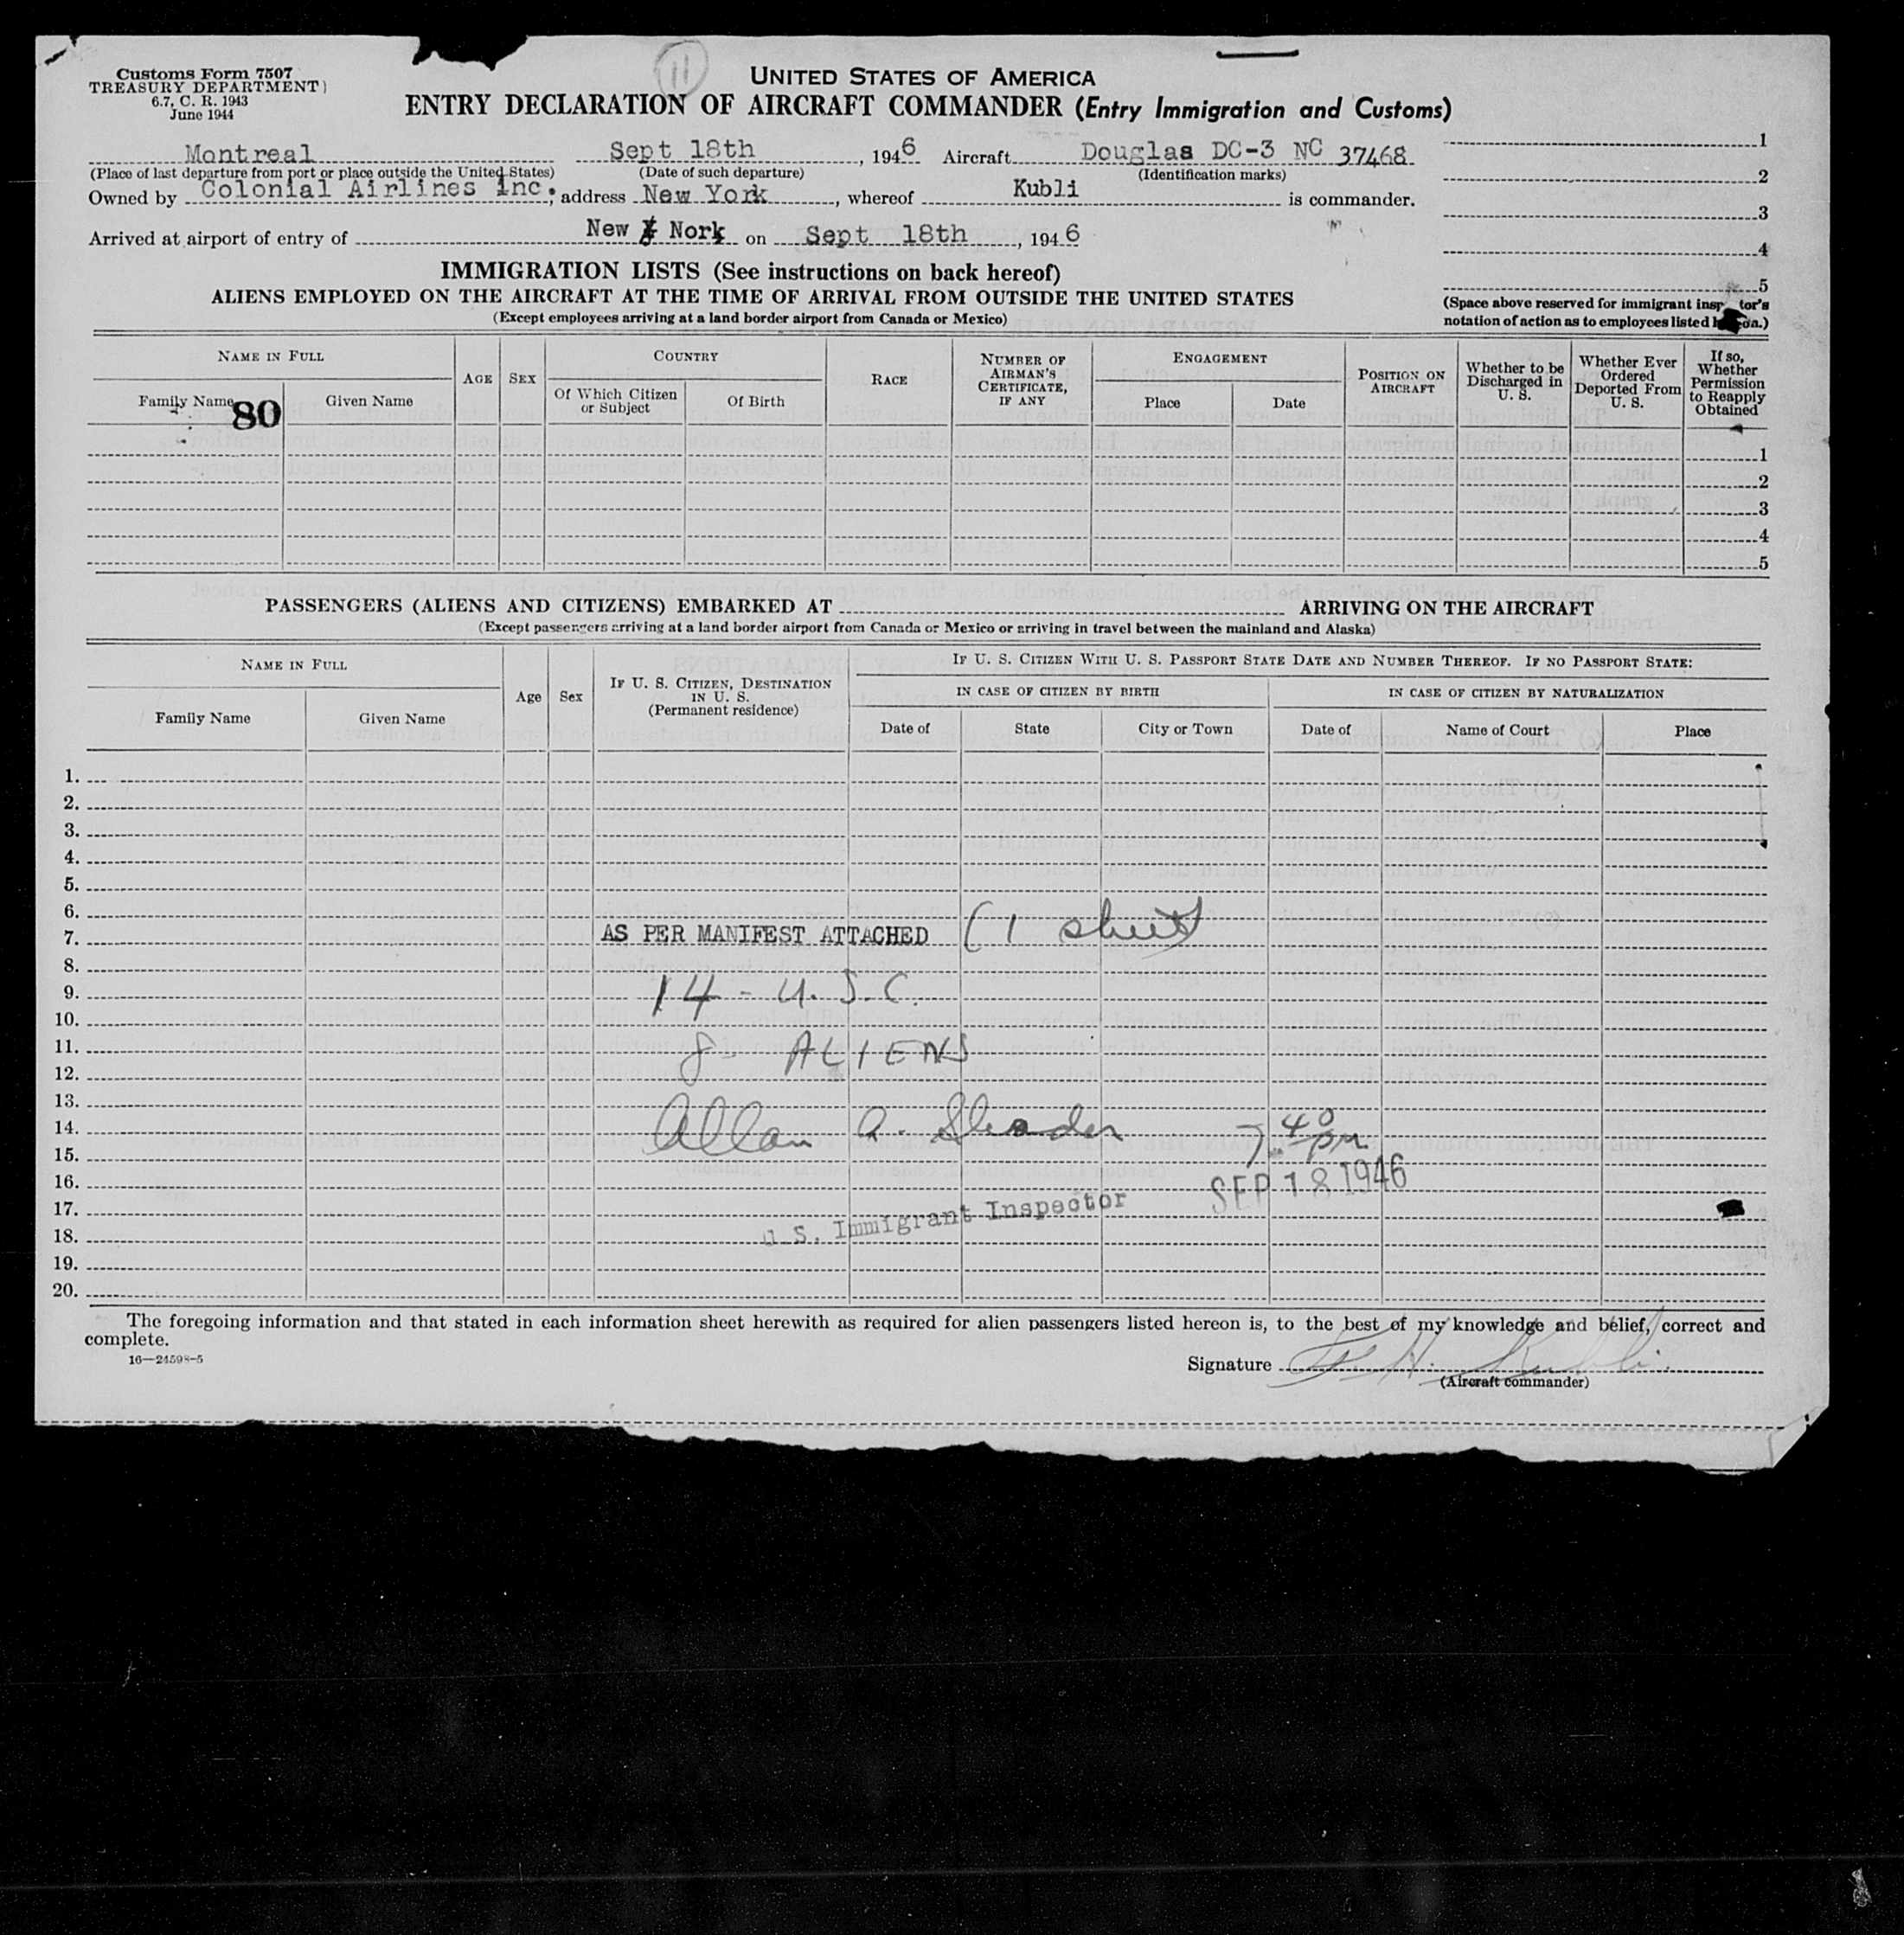 Customs Form 7507
TREASURY DEPARTMENT)
6.7, C. R. 1943
June 1944
11
UNITED STATES OF AMERICA
ENTRY DECLARATION OF AIRCRAFT COMMANDER (Entry Immigration and Customs)
Montreal Sept 18th, 1946 Aircraft Douglas DC-3 NC 37468
(Place of last departure from port or place outside the United States) (Date of such departure) (Identification marks)
Owned by Colonial Airlines Inc., address New York, whereof Kubli is commander.
Arrived at airport of entry of New Nork on Sept 18th, 1946
1
2
3
4
5
(Space above reserved for immigrant inspector's
notation of action as to employees listed hereon.)
IMMIGRATION LISTS (See instructions on back hereof)
ALIENS EMPLOYED ON THE AIRCRAFT AT THE TIME OF ARRIVAL FROM OUTSIDE THE UNITED STATES
(Except employees arriving at a land border airport from Canada or Mexico)
NAME IN FULL
Family Name
Given Name
80
AGE
SEX
COUNTRY
Of Which Citizen
or Subject
Of Birth
RACE
NUMBER OF
AIRMAN'S
CERTIFICATE,
IF ANY
ENGAGEMENT
Place
Date
POSITION ON
AIRCRAFT
Whether to be
Discharged in
U. S.
Whether Ever
Ordered
Deported From
U. S.
If so,
Whether
Permission
to Reapply
Obtained
1
2
3
4
5
PASSENGERS (ALIENS AND CITIZENS) EMBARKED AT ARRIVING ON THE AIRCRAFT
(Except passengers arriving at a land border airport from Canada or Mexico or arriving in travel between the mainland and Alaska)
NAME IN FULL
Family Name
Given Name
Age
Sex
IF U. S. CITIZEN, DESTINATION
IN U. S.
(Permanent residence)
IF U. S. CITIZEN WITH U. S. PASSPORT STATE DATE AND NUMBER THEREOF. IF NO PASSPORT STATE:
IN CASE OF CITIZEN BY BIRTH
Date of
State
City or Town
IN CASE OF CITIZEN BY NATURALIZATION
Date of
Name of Court
Place
1.
2.
3.
4.
5.
6.
7. AS PER MANIFEST ATTACHED (1 sheet)
8.
9. 14 - U.S.C.
10.
11. 8 - ALIENS
12.
13.
14. Allan A. 7 40 pm
15.
16. SEP 18 1946
17. U.S. Immigrant Inspector
18.
19.
20.
The foregoing information and that stated in each information sheet herewith as required for alien passengers listed hereon is, to the best of my knowledge and belief, correct and
complete.
16—24598-5
Signature H. Kubli
(Aircraft commander)